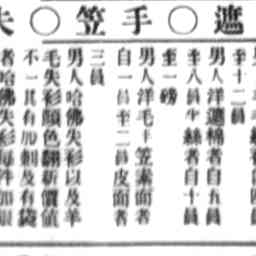 遮○手笠○
至十二員
男人洋遮棉者自五員
至八員半絲者自十員
至一磅
男人洋毛手笠素面者
自一員至二員皮面者
三員
男人哈佛失衫以及羊
毛失衫顏色翻新價值
不一其有加刺及有袋
者哈佛失衫每件加銀